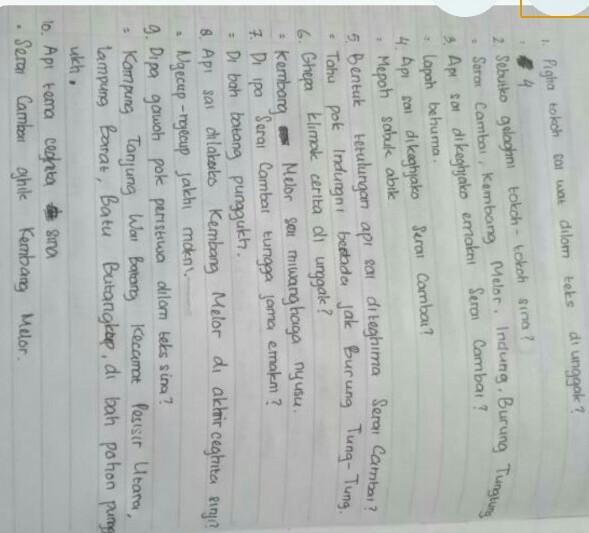 1. Pigha tokoh sai wat dilom teks di unggak?
: 4
2. Sebutko gelaghni tokoh-tokoh sina?
: Serai Cambai, Kembang Melor, Indung, Burung Tungtung
3. Api sai dikeghjako emakni Serai Cambai?
: Lapah behuma.
4. Api sai dikeghjako Serai Cambai?
: Mepoh sabuk abik
5. Bentuk tetulungan api sai diteghima Serai Cambai?
: Tahu pok Indungni berada jak Burung Tung-Tung.
6. Ghepa klimak cerita di unggak?
: Kembang Melor sai miwanghaga nyusu.
7. Di ipa Serai Cambai tungga jama emakni?
: Di bah batang punggukh.
8. Api sai dilakuko Kembang Melor di akhir ceghita sinji?
: Ngecup-ngecup jakhi makni.
9. Dipa gawoh pok peristiwa dilom teks sina?
: Kampung Tanjung Wai Batang Kecamat Pesisir Utara,
Lampung Barat, Batu Butangkop, di bah pohon pungg
ukh.
10. Api tema ceghita sina
• Serai Cambai ghik Kembang Melor.